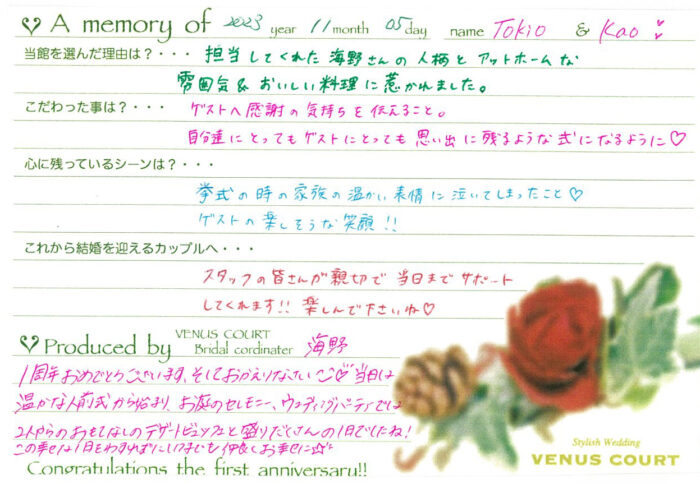 A memory of 2023 year 11 month 05 day name Tokio & Kao
当館を選んだ理由は？・・・ 担当してくれた海野さんの人柄とアットホームな
雰囲気&おいしい料理に惹かれました。
こだわった事は？・・・ ゲストへ感謝の気持ちを伝えること。
自分達にとってもゲストにとっても思い出に残るような式になるように♡
心に残っているシーンは？・・・
挙式の時の家族の温かい表情に泣いてしまったこと♡
ゲストの楽しそうな笑顔!!
これから結婚を迎えるカップルへ・・・
スタッフの皆さんが親切で当日までサポート
してくれます!! 楽しんで下さいね♡
VENUS COURT
Produced by Bridal cordinater 海野
1周年おめでとうございます、そしておかえりなさい♡当日は
温かな人前式から始まり、お庭のセレモニー、ウェディングパーティでは
2人からのおもてなしのデザートビュッフェと盛りだくさんの1日でしたね!
この幸せな1日をわすれずにいつまでも仲良くお幸せに
Congratulations the first anniversary!!
Stylish Wedding
VENUS COURT